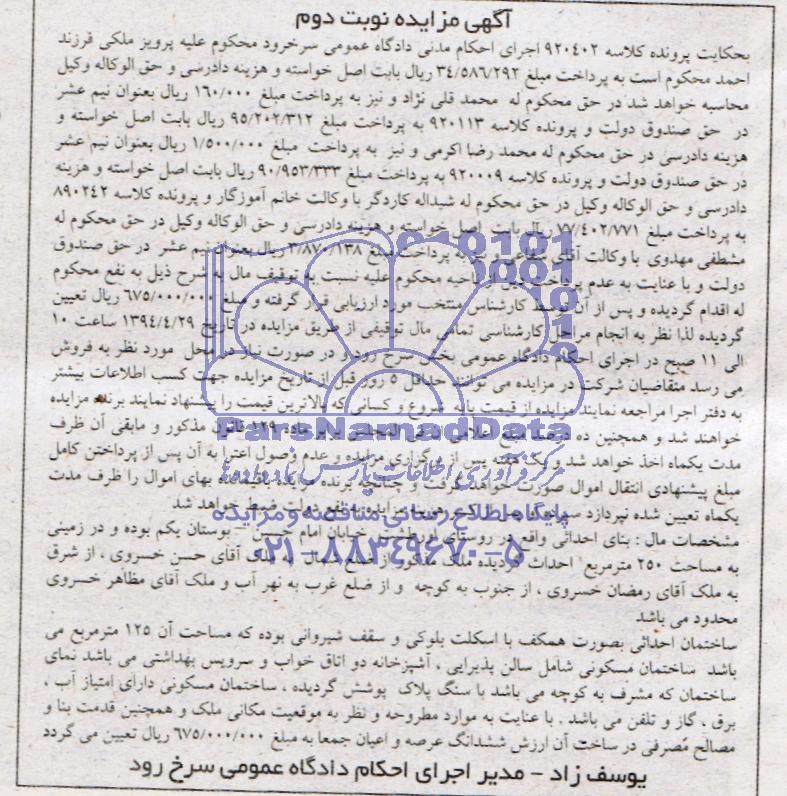 آگهی مزایده نوبت دوم
بحکایت پرونده کلاسه ۹۲۰۴۰۲ اجرای احکام مدنی دادگاه عمومی سرخرود محکوم علیه پرویز ملکی فرزند
احمد محکوم است به پرداخت مبلغ ۳۴/۵۸۶/۲۹۲ ریال بابت اصل خواسته و هزینه دادرسی و حق الوکاله وکیل
محاسبه خواهد شد در حق محکوم له محمد قلی نژاد و نیز به پرداخت مبلغ ۱۶۰/۰۰۰ ریال بعنوان نیم عشر
در حق صندوق دولت و پرونده کلاسه ۹۲۰۱۱۳ به پرداخت مبلغ ۹۵/۲۰۲/۳۱۲ ریال بابت اصل خواسته و
هزینه دادرسی در حق محکوم له محمد رضا اکرمی و نیز به پرداخت مبلغ ۱/۵۰۰/۰۰۰ ریال بعنوان نیم عشر
در حق صندوق دولت و پرونده کلاسه ۹۲۰۰۰۹ به پرداخت مبلغ ۹۰/۹۵۳/۳۳۳ ریال بابت اصل خواسته و هزینه
دادرسی و حق الوکاله وکیل در حق محکوم له شیداله کاردگر با وکالت خانم آموزگار و پرونده کلاسه ۸۹۰۲۴۲
به پرداخت مبلغ ۷۷/۴۰۲/۷۷۱ ریال بابت اصل خواسته و هزینه دادرسی و حق الوکاله وکیل در حق محکوم له
مشطفی مهدوی با وکالت آقای شفاعی و نیز به پرداخت مبلغ ۳/۸۷۰/۱۳۸ ریال بعنوان نیم عشر در حق صندوق
دولت و با عنایت به عدم پرداخت دین از ناحیه محکوم علیه نسبت به توقیف مال به شرح ذیل به نفع محکوم
له اقدام گردیده و پس از آن توسط کارشناس منتخب مورد ارزیابی قرار گرفته و مبلغ ۶۷۵/۰۰۰/۰۰۰ ریال تعیین
گردیده لذا نظر به انجام مراحل کارشناسی تمامی مال توقیفی از طریق مزایده در تاریخ ۱۳۹۴/۴/۲۹ ساعت ۱۰
الی ۱۱ صبح در اجرای احکام دادگاه عمومی بخش سرخ رود و در صورت نیاز در محل مورد نظر به فروش
می رسد متقاضیان شرکت در مزایده می توانند حداقل ۵ روز قبل از تاریخ مزایده جهت کسب اطلاعات بیشتر
به دفتر اجرا مراجعه نمایند مزایده از قیمت پایه شروع و کسانی که بالاترین قیمت را پیشنهاد نمایند برنده مزایده
خواهند شد و همچنین ده درصد مبلغ اعلامی فی المجلس برابر ماده ۱۲۹ قانون مذکور و مابقی آن ظرف
مدت یکماه اخذ خواهد شد و یک هفته پس از برگزاری مزایده و عدم وصول اعتراض به آن پس از پرداختن کامل
مبلغ پیشنهادی انتقال اموال صورت خواهد گرفت و چنانچه برنده مزایده باقیمانده بهای اموال را ظرف مدت
یکماه تعیین شده نپردازد سپرده او پس از کسر هزینه مزایده به نفع دولت ضبط خواهد شد
مشخصات مال : بنای احداثی واقع در روستای خیابان امام خمینی - بوستان یکم بوده و در زمینی
به مساحت ۲۵۰ مترمربع احداث گردیده ملک مذکور از ضلع شمال به ملک آقای حسن خسروی ، از شرق
به ملک آقای رمضان خسروی ، از جنوب به کوچه و از ضلع غرب به نهر آب و ملک آقای مظاهر خسروی
محدود می باشد
ساختمان احداثی بصورت همکف با اسکلت بلوکی و سقف شیروانی بوده که مساحت آن ۱۲۵ مترمربع می
باشد ساختمان مسکونی شامل سالن پذیرایی ، آشپزخانه دو اتاق خواب و سرویس بهداشتی می باشد نمای
ساختمان که مشرف به کوچه می باشد با سنگ پلاک پوشش گردیده ، ساختمان مسکونی دارای امتیاز آب ،
برق ، گاز و تلفن می باشد . با عنایت به موارد مطروحه و نظر به موقعیت مکانی ملک و همچنین قدمت بنا و
مصالح مصرفی در ساخت آن ارزش ششدانگ عرصه و اعیان جمعا به مبلغ ۶۷۵/۰۰۰/۰۰۰ ریال تعیین می گردد
یوسف زاد - مدیر اجرای احکام دادگاه عمومی سرخ رود
ParsNamadData
مرکز فرآوری اطلاعات پارس نماد داده ها
پایگاه اطلاع رسانی مناقصه و مزایده
۰۲۱-۸۸۳۴۹۶۷۰-۵